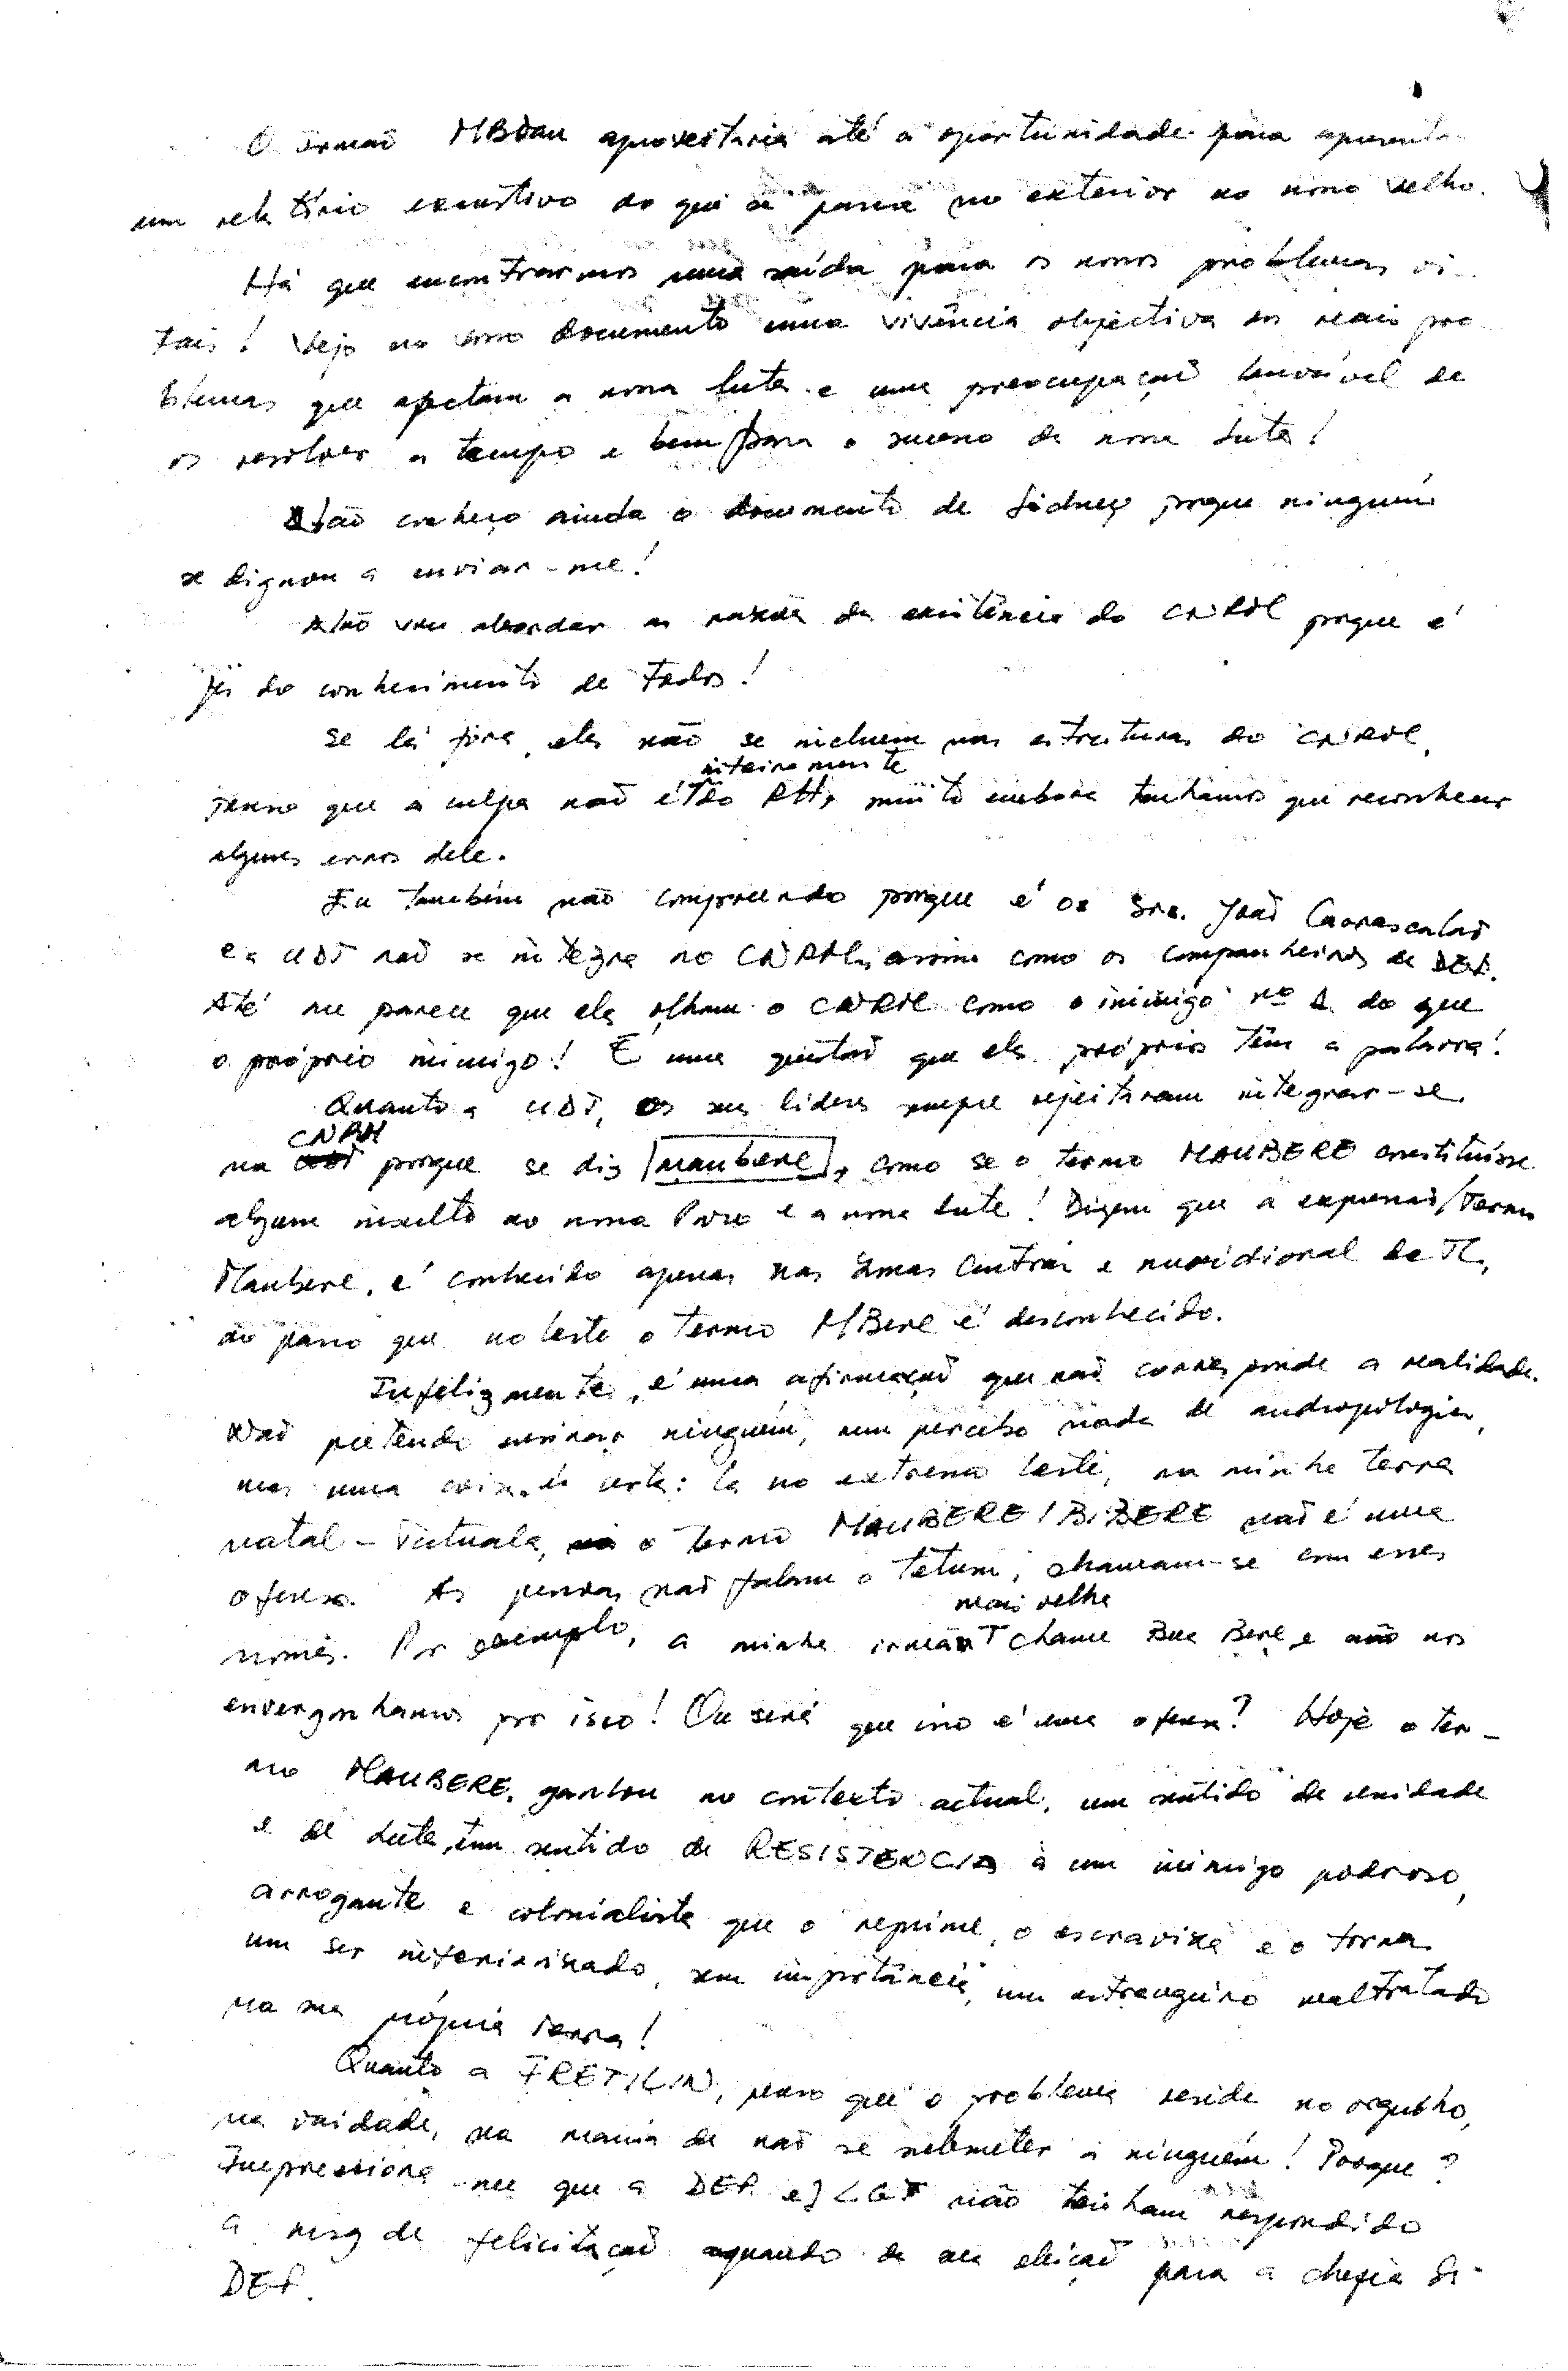 O irmaõ MBdau aproveitaria até a oportunidade para apresentar
um relatório exaustivo do que se passa no exterior ao nosso velho.
Há que encontrarmos uma saída para os nossos problemas vi-
tais! Vejo no vosso documento uma vivência objectiva dos reais pro
blemas que afectam a nossa luta e uma preocupaçaõ louvável de
os resolver a tempo e bem para o sucesso da nossa luta!
Não conheço ainda o documento de Sidney porque ninguém
se dignou a enviar-me!
Não vou abordar as razões da existência do CNRM porque é
já do conhecimento de todos!
Se lá fora, eles não se incluem nas estruturas do CNRM,
penso que a culpa naõ é inteiramente do RH, muito embora tenhamos que reconhecer
alguns erros dele.
Eu também não compreendo porque é os Srs. Joaõ Carrascalaõ
e a UDT naõ se integra no CNRM, assim como os companheiros da DEF.
Até me parece que eles olham o CNRM como o inimigo nº 1 do que
o próprio inimigo! É uma questaõ que eles próprios têm a palavra!
Quanto a UDT, os seus líderes sempre rejeitaram integrar-se
na CNRM porque se diz maubere, como se o termo MAUBERE constituísse
algum insulto ao nosso Povo e a nossa luta! Dizem que a expressaõ/Termo
Maubere, é conhecido apenas nas zonas Centrai e meridional de TL,
ao passo que no leste o termo MBere é desconhecido.
Infelizmente, é uma afirmaçaõ que naõ corresponde a realidade.
Naõ pretendo ensinar ninguém, nem percebo nada de andropologia,
mas uma coisa é certa: lá no extremo leste, na minha terra
natal - Tutuala, o termo MAUBERE/BiBERE naõ é uma
ofensa. As pessoas naõ falam o tetum; chamam-se com esses
nomes. Por exemplo, a minha irmã mais velha chama Bue Bere e não nos
envergonhamos por isso! Ou será que isso é uma ofensa? Hoje o ter-
mo MAUBERE, ganhou no contexto actual, um sentido de unidade
e de luta, um sentido de RESISTENCIA a um inimigo poderoso,
arrogante e colonialista que o reprime, o escraviza e o torna
um ser inferiorizado, sem importância, um estrangeiro maltratado
na sua própria terra!
Quanto a FRETILIN, penso que o problema reside no orgulho,
na vaidade, na mania de naõ se submeter a ninguém! Porque?
Impressiona-me que a DEF e LGT não tenham respondido
a msg de felicitaçaõ aquando da sua eleiçaõ para a chefia da
DEF.